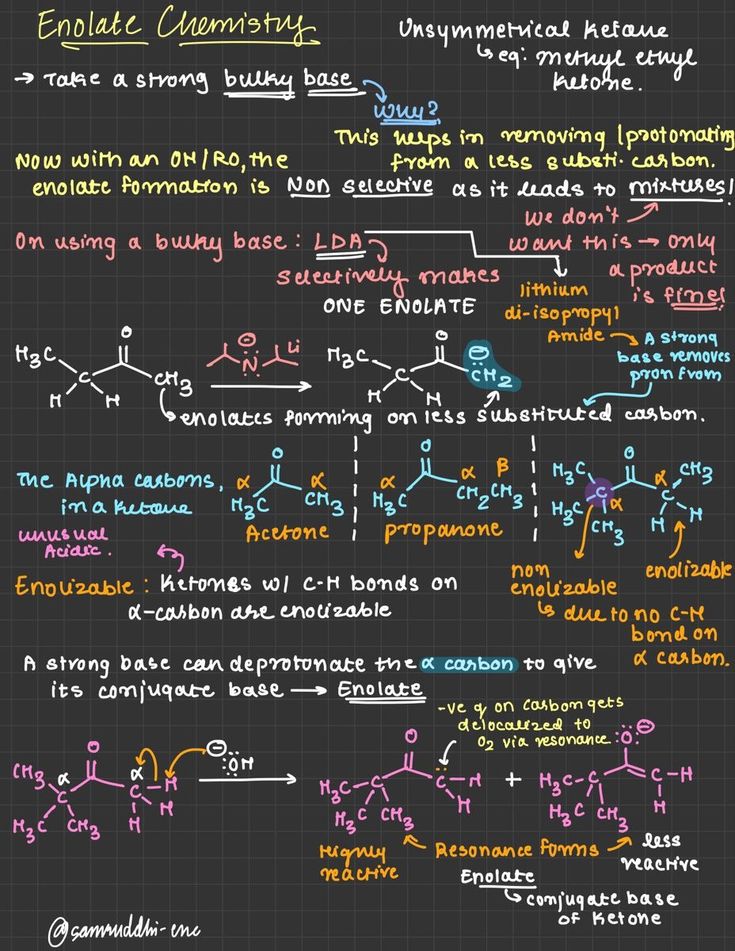 Enolate Chemistry
Unsymmetrical Ketone
↳ eq: methyl ethyl
ketone.
→ Take a strong bulky base
Why?
This helps in removing (protonating
from a less substi. carbon.
Now with an OH/RO, the
enolate formation is Non selective as it leads to mixtures!
we don't
want this → only
a product
is fine!
On using a bulky base: LDA
selectively makes
ONE ENOLATE
lithium
di-isopropyl
Amide → A strong
base removes
pron from
H3C C O CH3 H H
⊖ N Li
H3C C O ⊖ CH2 H H
↳ enolates forming on less substituted carbon.
The Alpha carbons,
in a ketone
unusual
Acidic.
α O α
H3C CH3
Acetone
α O α β
H3C CH2CH3
propanone
H3C O α CH3
H3C C α C
CH3 H H
non
enolizable
enolizable
↳ due to no C-H
bond on
α carbon.
Enolizable: Ketones w/ C-H bonds on
α-carbon are enolizable
A strong base can deprotonate the α carbon to give
its conjugate base → Enolate
-ve q on carbon gets
delocalized to
O2 via resonance
CH3 α O α ⊖ :OH
C C-H
H3C CH3 H H
O
H3C-C C-H
H3C CH3 H
+
:O: ⊖
H3C-C C-H
H3C CH3 H
Highly
reactive
Resonance forms
less
reactive
Enolate
↳ conjugate base
of Ketone
@samruddhi-enc